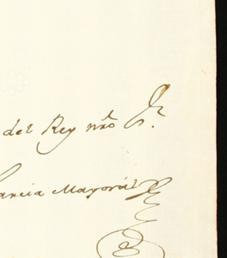 del Rey nrõ S.r
arcia Mayoral